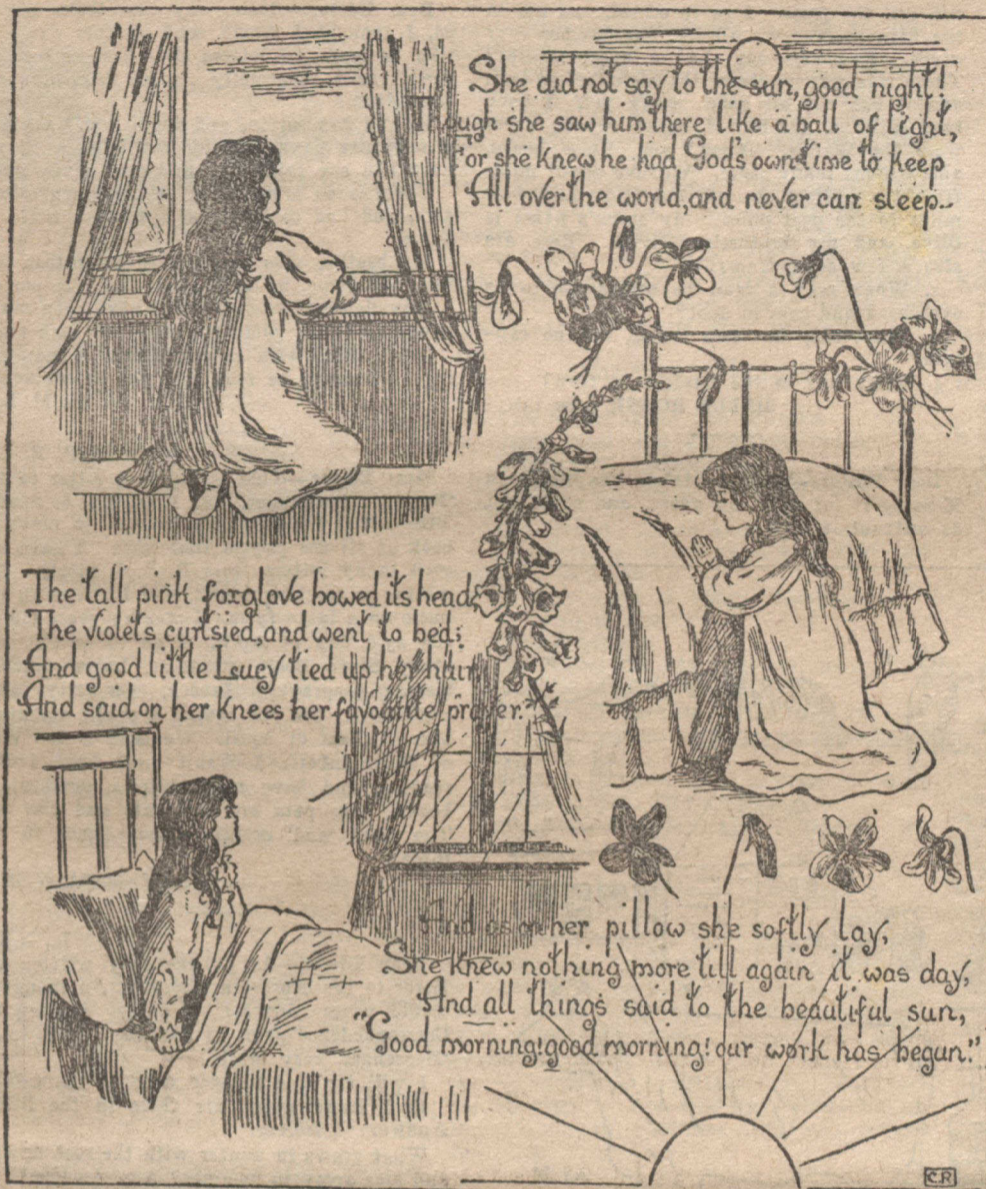 She did not say to the sun, good night!
Though she saw him there like a ball of light,
For she knew he had God's own time to keep
All over the world, and never can sleep..
The tall pink foxglove bowed its head;
The violets curtsied, and went to bed;
And good little Lucy tied up her hair,
And said on her knees her favourite prayer.
And as on her pillow she softly lay,
She knew nothing more till again it was day,
And all things said to the beautiful sun,
"Good morning! good morning! our work has begun."
C.R